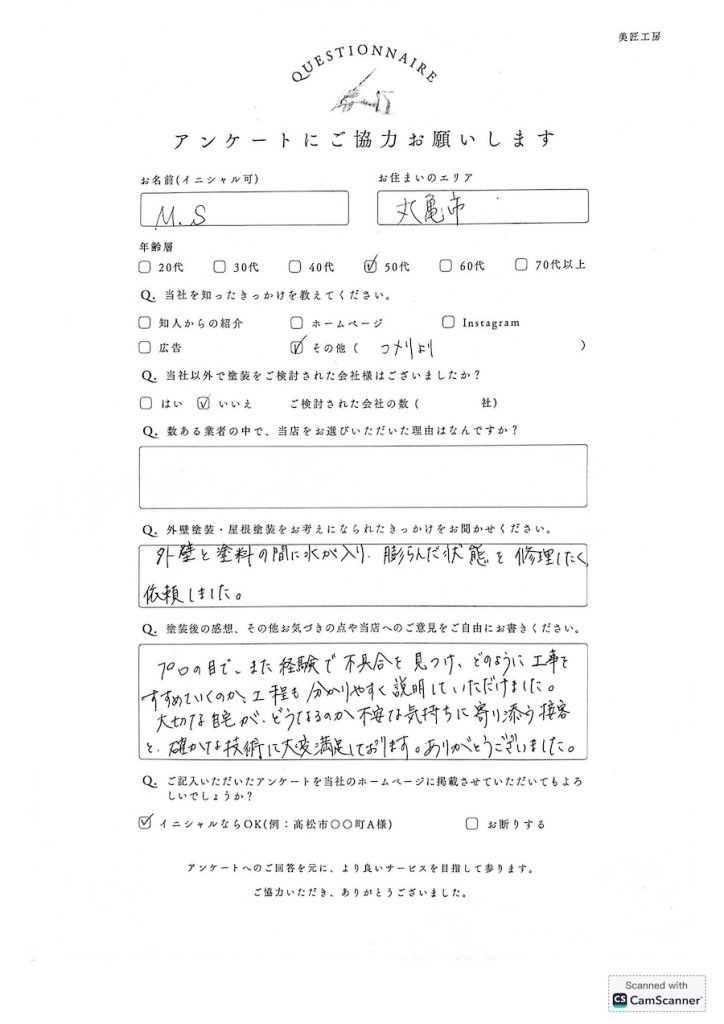 美匠工房
QUESTIONNAIRE
アンケートにご協力お願いします
お名前(イニシャル可) お住まいのエリア
M.S 丸亀市
年齢層
☐ 20代 ☐ 30代 ☐ 40代 ☑ 50代 ☐ 60代 ☐ 70代以上
Q. 当社を知ったきっかけを教えてください。
☐ 知人からの紹介 ☐ ホームページ ☐ Instagram
☐ 広告 ☑ その他 ( コメリより )
Q. 当社以外で塗装をご検討された会社様はございましたか？
☐ はい ☑ いいえ ご検討された会社の数 ( 社)
Q. 数ある業者の中で、当店をお選びいただいた理由はなんですか？
Q. 外壁塗装・屋根塗装をお考えになられたきっかけをお聞かせください。
外壁と塗料の間に水が入り、膨らんだ状態を修理したく
依頼しました。
Q. 塗装後の感想、その他お気づきの点や当店へのご意見をご自由にお書きください。
プロの目で、また経験で不具合を見つけ、どのように工事を
すすめていくのか、工程も分かりやすく説明していただけました。
大切な自宅が、どうなるのか不安な気持ちに寄り添う接客
と、確かな技術に大変満足しております。ありがとうございました。
Q. ご記入いただいたアンケートを当社のホームページに掲載させていただいてもよろ
しいでしょうか？
☑ イニシャルならOK(例：高松市〇〇町A様) ☐ お断りする
アンケートへのご回答を元に、より良いサービスを目指して参ります。
ご協力いただき、ありがとうございました。
Scanned with
CS CamScanner